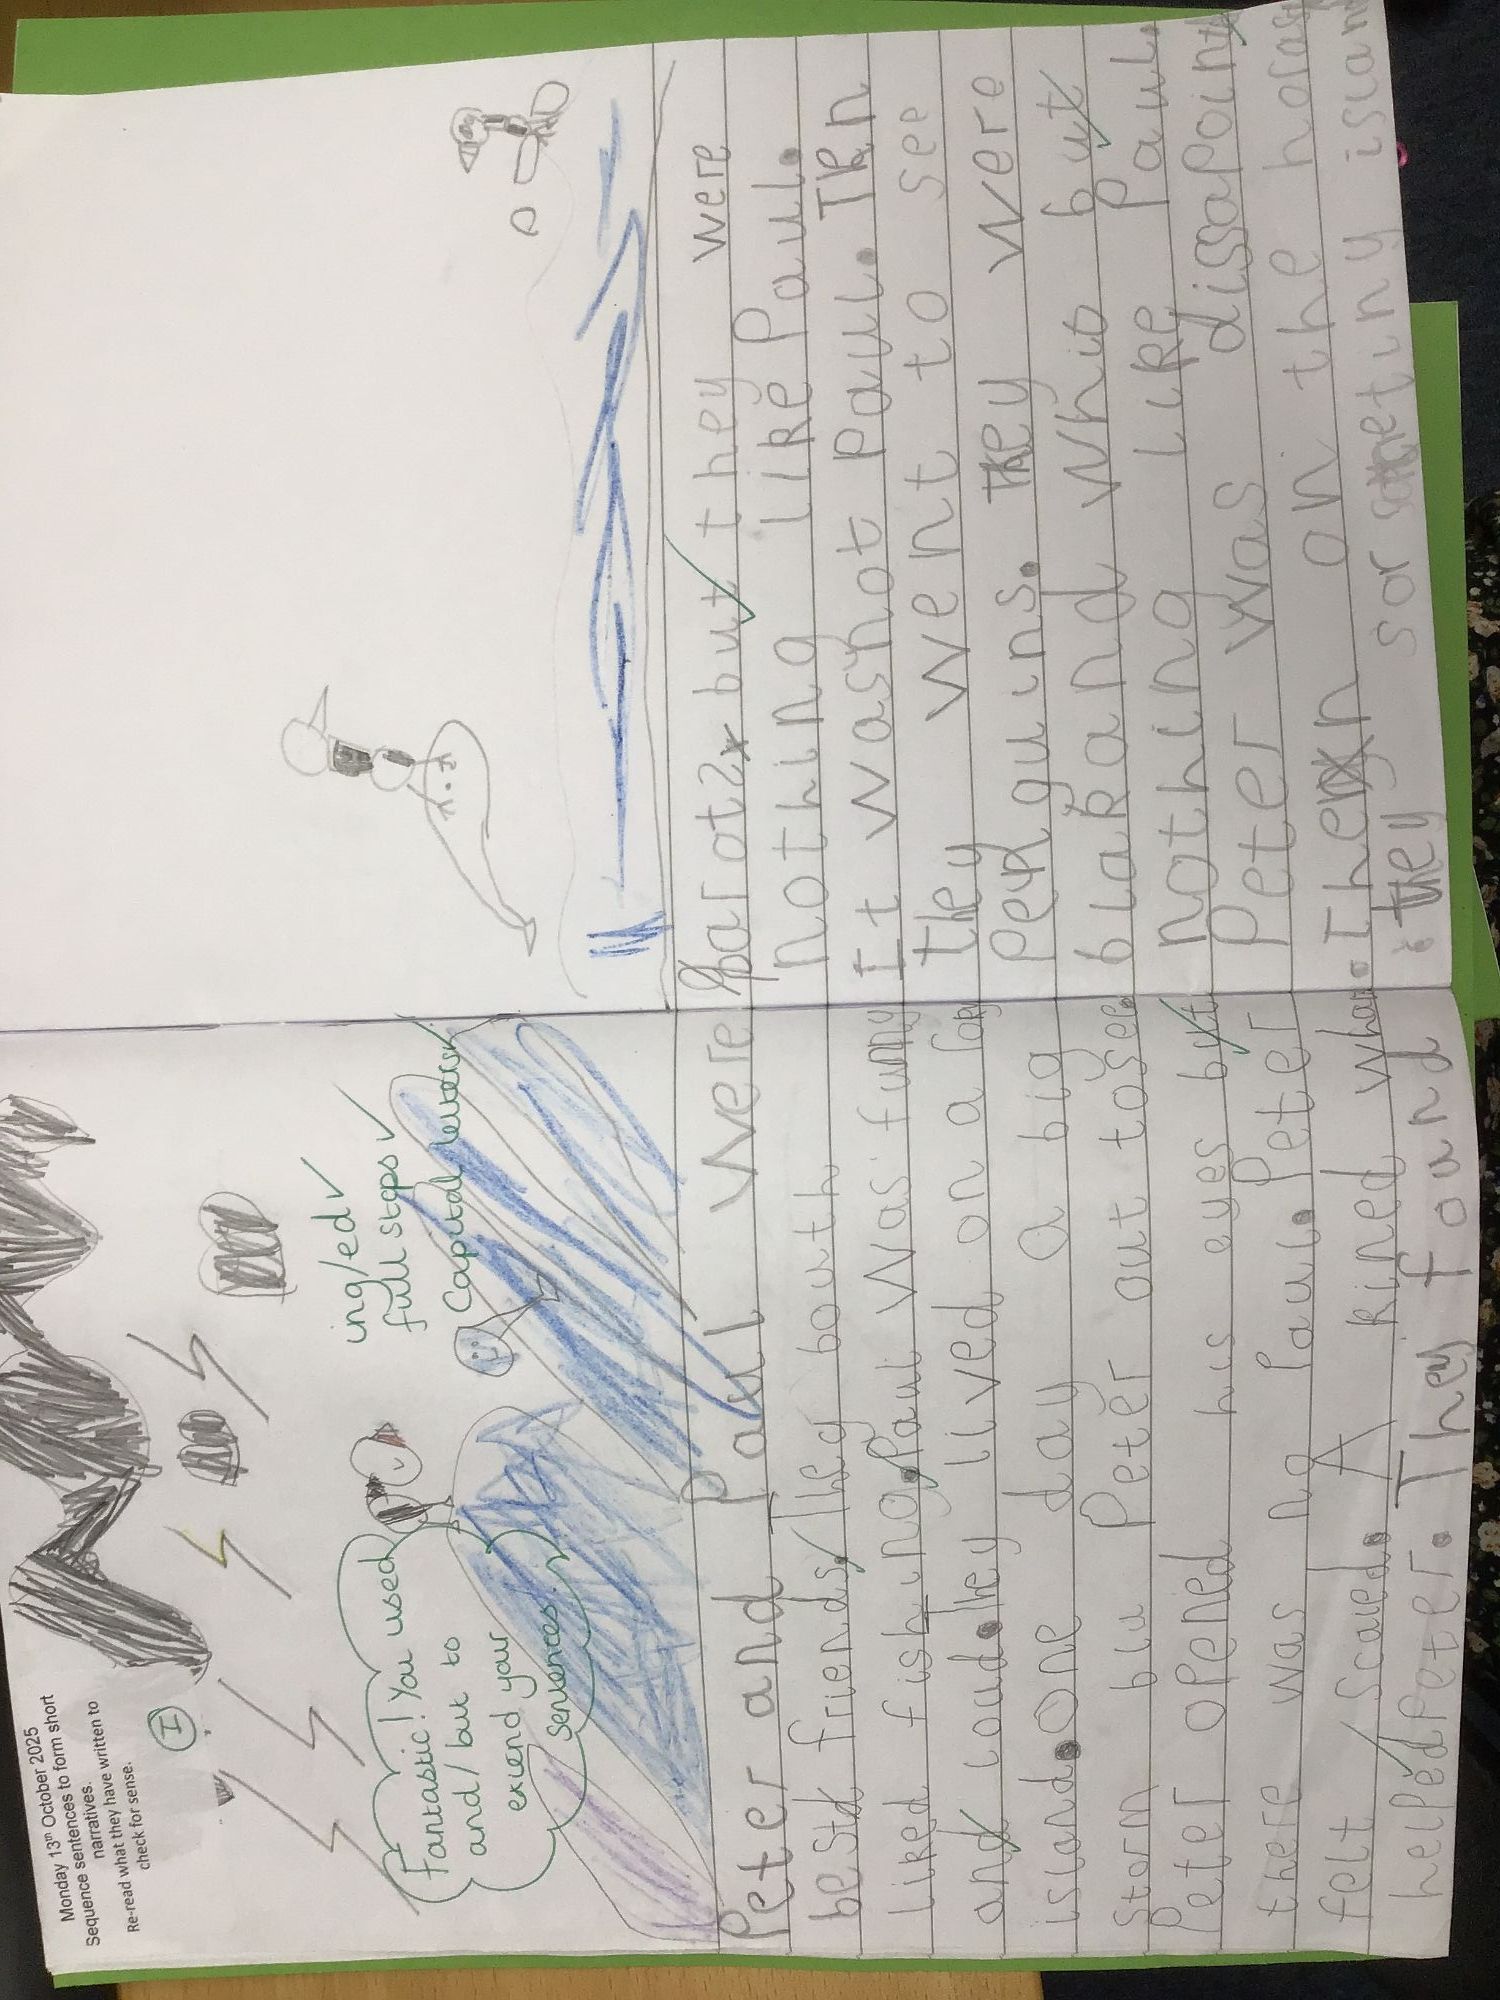 Monday 13th October 2025
Sequence sentences to form short
narratives.
Re-read what they have written to
check for sense.
I
ing/ed ✓
full stops ✓
Capital letters ✓
Fantastic! You used
and/but to
extend your
sentences.
Peter and Paul were
best friends. They bouth
liked fishing. Paul was funny
and loud. They lived on a
island. One day a big
storm blu Peter out to see.
Peter opened his eyes but
there was no Paul. Peter
felt scaed. A kined
helped Peter. They found
parots but they were
nothing like Paul.
It was not Paul. Then
they went to see
penguins. They were
blak and whit but
nothing like Paul.
Peter was dissapoint
Then on the
they sor someting